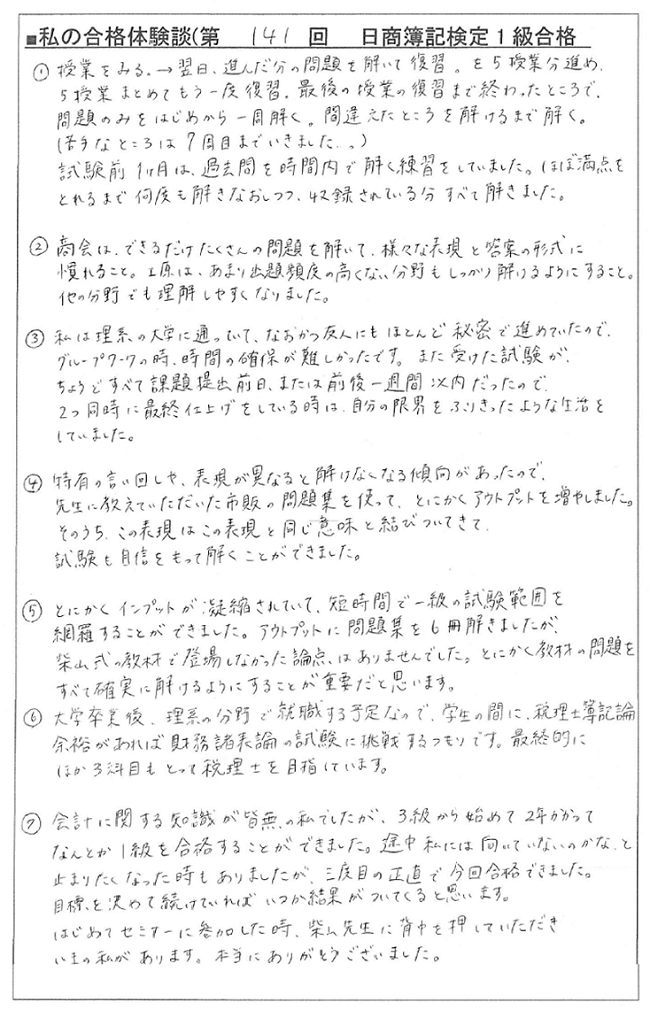 ■私の合格体験談(第 141 回 日商簿記検定1級合格
① 授業をみる。→翌日、進んだ分の問題を解いて復習。を5授業分進め、
5授業まとめてもう一度復習。最後の授業の復習まで終わったところで、
問題のみをはじめから一周解く。間違えたところを解けるまで解く。
(苦手なところは7周目までいきました…。)
試験前1ヶ月は、過去問を時間内で解く練習をしていました。ほぼ満点を
とれるまで何度も解きなおしつつ、収録されている分すべて解きました。
② 商会は、できるだけたくさんの問題を解いて、様々な表現と答案の形式に
慣れること。工原は、あまり出題頻度の高くない分野もしっかり解けるようにすること。
他の分野でも理解しやすくなりました。
③ 私は理系の大学に通っていて、なおかつ友人にもほとんど秘密で進めていたので、
グループワークの時、時間の確保が難しかったです。また受けた試験が、
ちょうどすべて課題提出前日、または前後一週間以内だったので、
2つ同時に最終仕上げをしている時は、自分の限界をふりきったような生活を
していました。
④ 特有の言い回しや、表現が異なると解けなくなる傾向があったので、
先生に教えていただいた市販の問題集を使って、とにかくアウトプットを増やしました。
そのうち、この表現はこの表現と同じ意味と結びついてきて、
試験も自信をもって解くことができました。
⑤ とにかくインプットが凝縮されていて、短時間で一級の試験範囲を
網羅することができました。アウトプットに問題集を6冊解きましたが、
柴山式の教材で登場しなかった論点はありませんでした。とにかく教材の問題を
すべて確実に解けるようにすることが重要だと思います。
⑥ 大学卒業後、理系の分野で就職する予定なので、学生の間に、税理士簿記論
余裕があれば財務諸表論の試験に挑戦するつもりです。最終的に
ほか3科目もとって税理士を目指しています。
⑦ 会計に関する知識が皆無の私でしたが、3級から始めて2年かかって
なんとか1級を合格することができました。途中私には向いていないのかな、と
止まりたくなった時もありましたが、三度目の正直で今回合格できました。
目標を決めて続けていればいつか結果がついてくると思います。
はじめてセミナーに参加した時、柴山先生に背中を押していただき
いまの私があります。本当にありがとうございました。